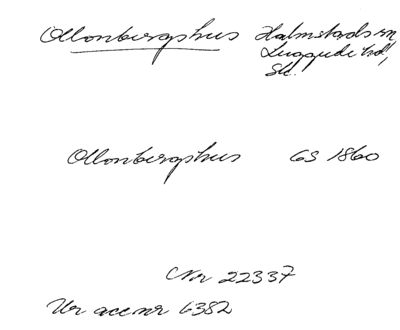 Ollonbergshus Halmstads sn,
Luggude hd,
Sk.
Ollonbergshus GS 1860
Nr 22337
Ur acc nr 6382